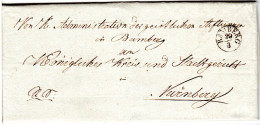 Von K. Administration des geistlichen
in Bamberg
an
Königliches Kreis und Stadtgericht
Nürnberg
BAMBERG